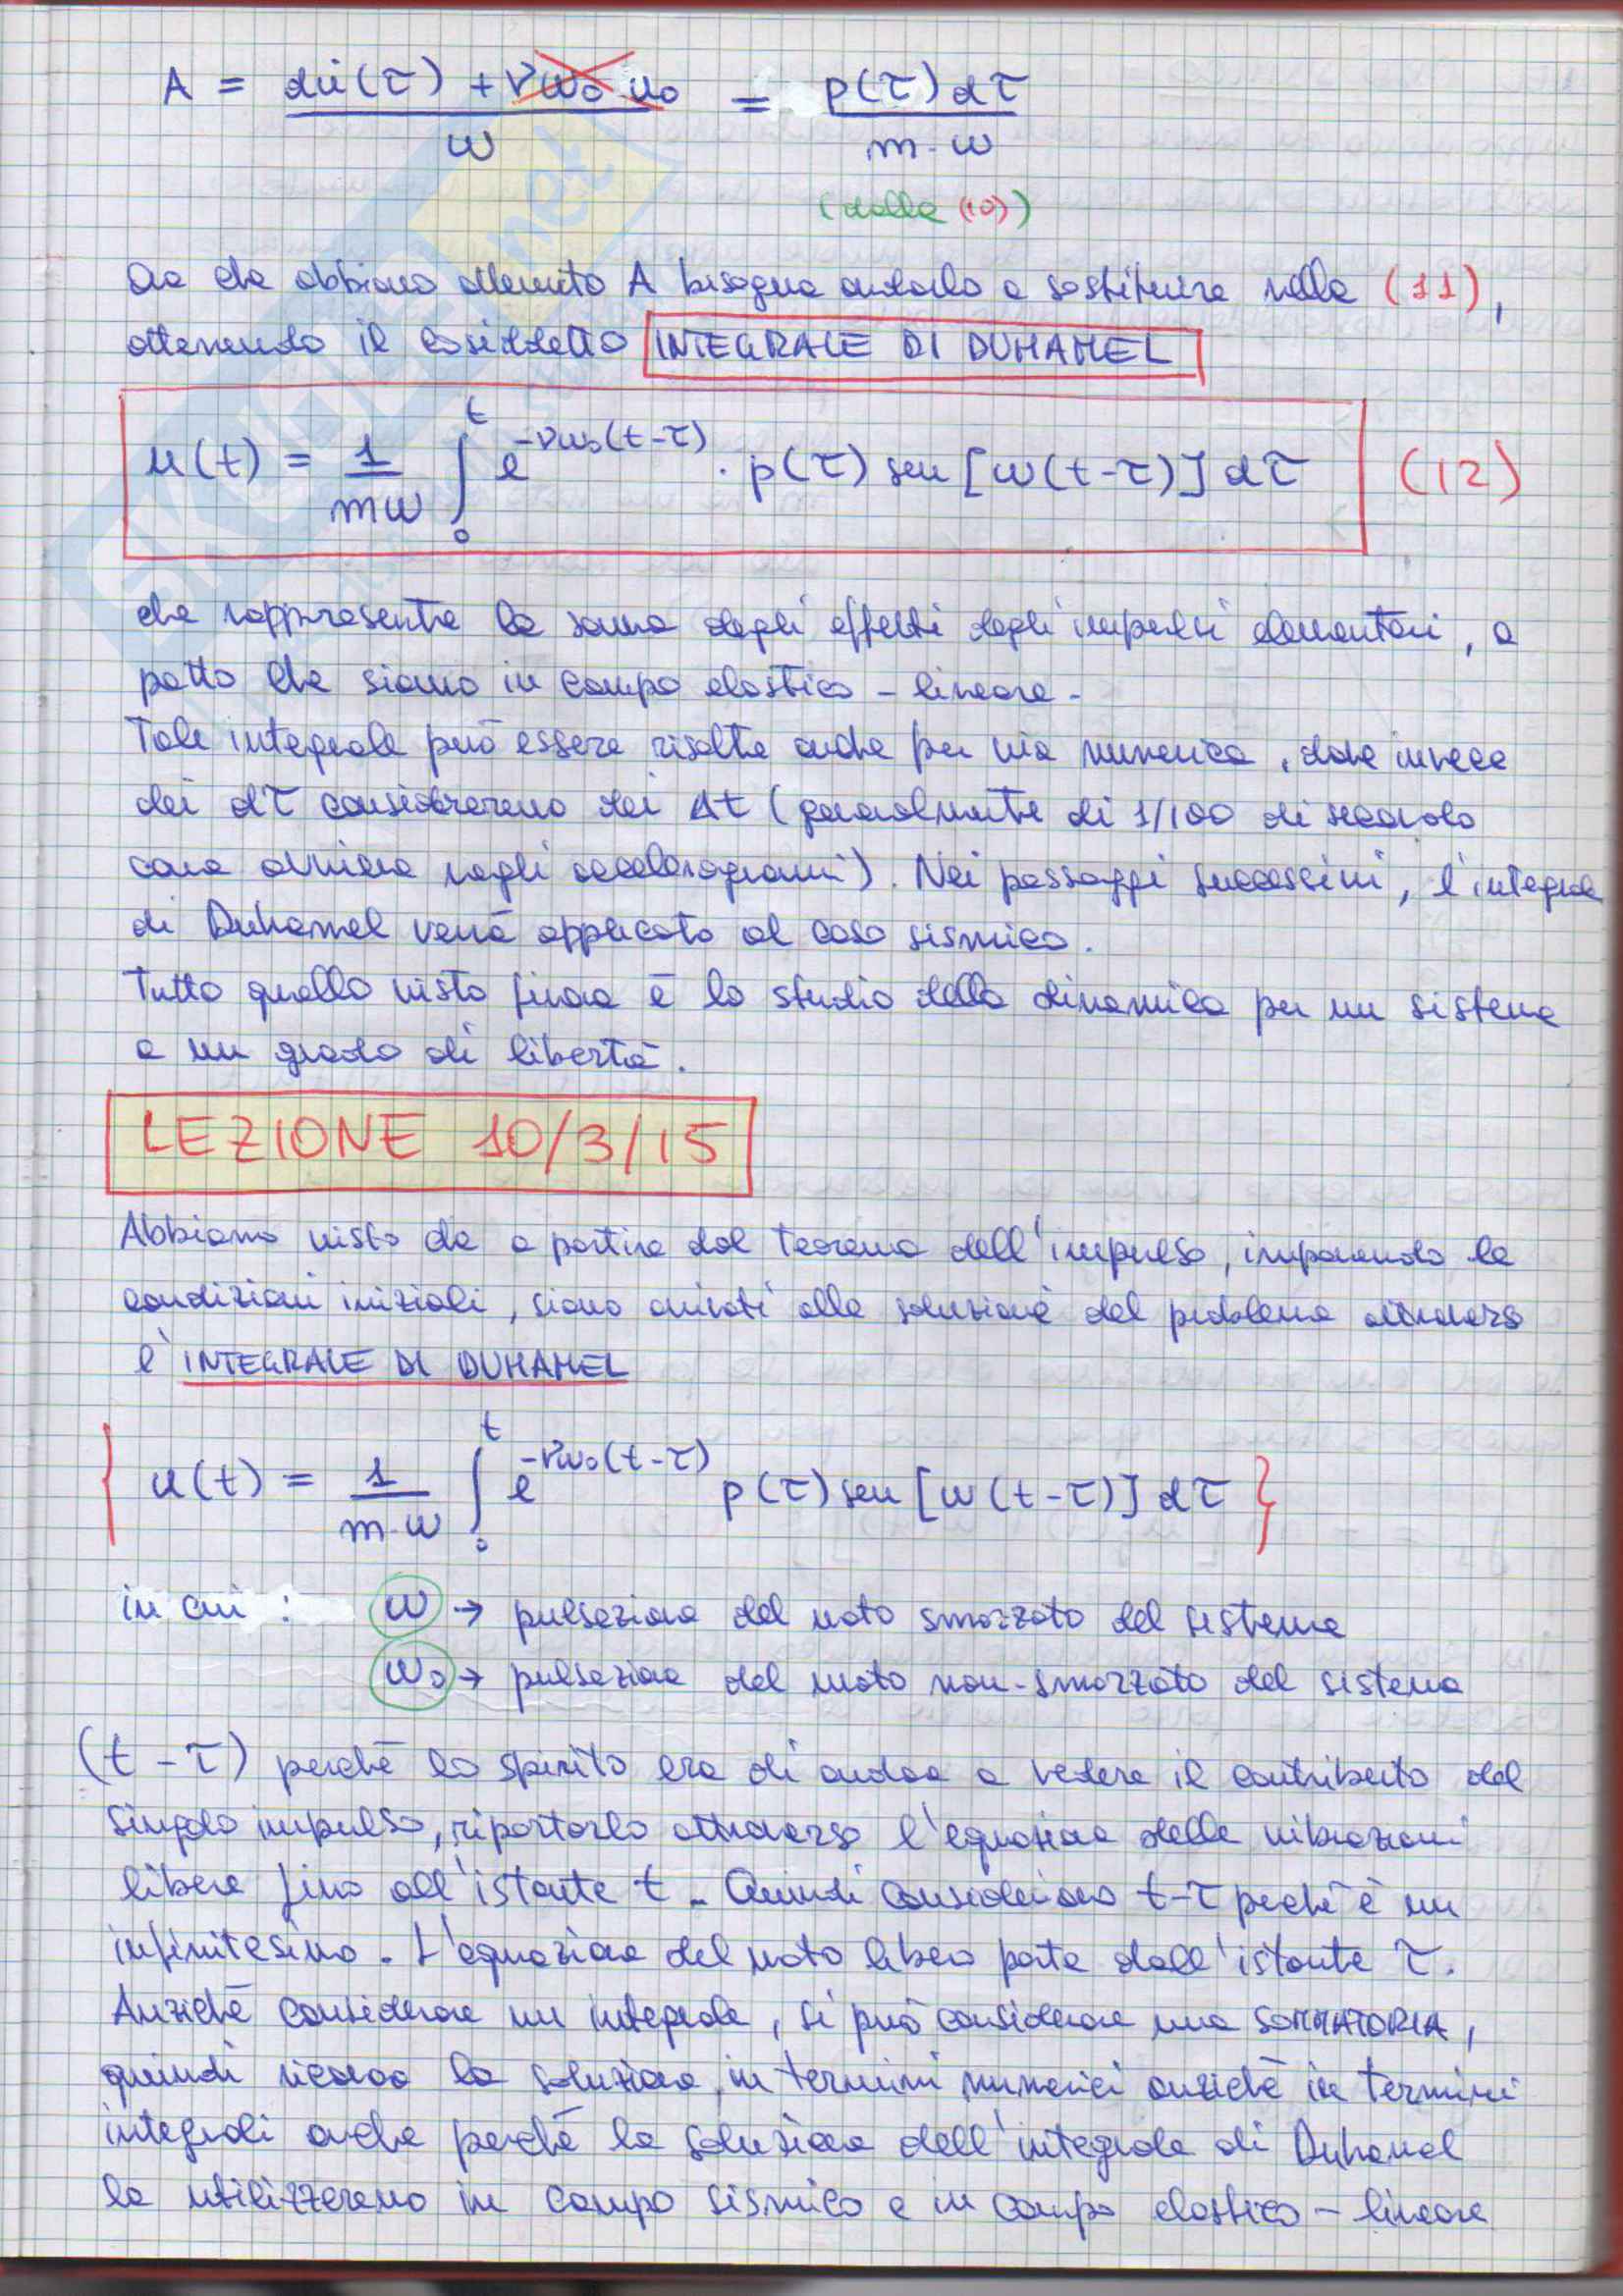 A = du̇(τ) + νω₀ u₀ / ω = p(τ)dτ / m·ω
(dalla (10))
Ora che abbiamo ottenuto A bisogna andarlo a sostituire nella (11),
ottenendo il cosiddetto INTEGRALE DI DUHAMEL
u(t) = 1/mω ∫₀ᵗ e^-νω₀(t-τ) · p(τ) sen [ω(t-τ)] dτ (12)
che rappresenta la somma degli effetti degli impulsi elementari, a
patto che siamo in campo elastico - lineare -
Tale integrale può essere risolto anche per via numerica, dove invece
dei dτ considereremo dei Δt (generalmente di 1/100 di secondo
come avviene negli accelerogrammi). Nei passaggi successivi, l'integrale
di Duhamel verrà applicato al caso sismico.
Tutto quello visto finora è lo studio della dinamica per un sistema
a un grado di libertà.
LEZIONE 10/3/15
Abbiamo visto che a partire dal teorema dell'impulso, imponendo le
condizioni iniziali, siamo arrivati alla soluzione del problema attraverso
l'INTEGRALE DI DUHAMEL
{ u(t) = 1/m·ω ∫₀ᵗ e^-νω₀(t-τ) p(τ) sen [ω(t-τ)] dτ }
in cui : ω → pulsazione del moto smorzato del sistema
ω₀ → pulsazione del moto non-smorzato del sistema
(t - τ) perché lo spirito era di andare a vedere il contributo del
singolo impulso, riportarlo attraverso l'equazione delle vibrazioni
libere fino all'istante t. Quindi consideriamo t-τ perché è un
infinitesimo. L'equazione del moto libero parte dall'istante τ.
Anziché considerare un integrale, si può considerare una SOMMATORIA,
quindi ricavo la soluzione in termini numerici anziché in termini
integrali anche perché la soluzione dell'integrale di Duhamel
la utilizzeremo in campo sismico e in campo elastico - lineare